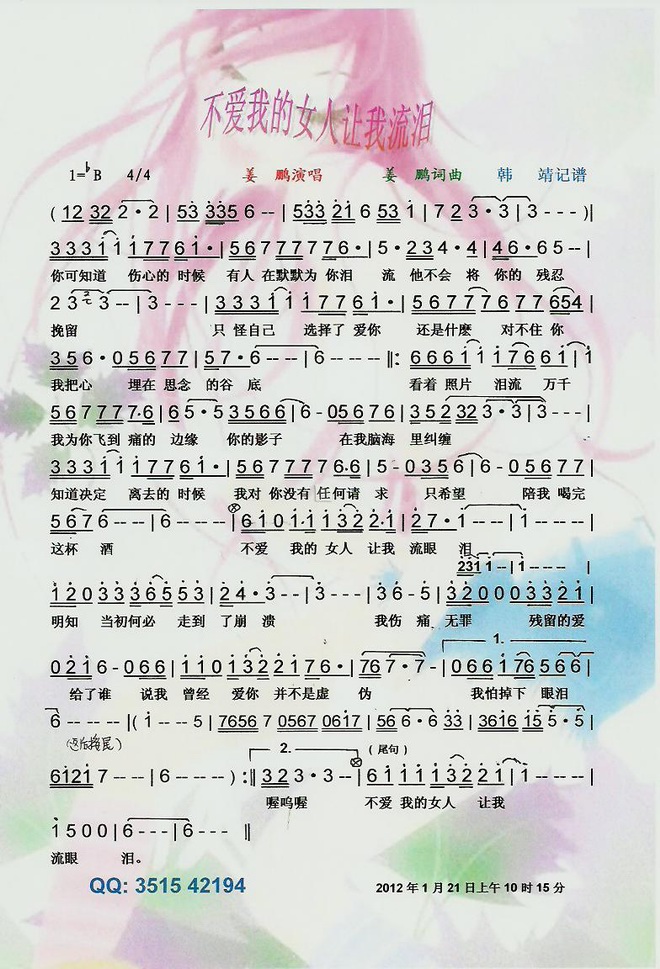 不爱我的女人让我流泪
1=♭B 4/4 姜 鹏演唱 姜 鹏词曲 韩 靖记谱
( 12 32 2·2 | 53 335 6 -- | 533 21 6 53 1 | 7 2 3·3 | 3 --- )||
3331 1 177 61· | 567 7777 76· | 5·234·4 | 46·65 -- |
你可知道 伤心的 时候 有人 在默默为 你泪 流 他不会 将 你的 残忍
2 3 3 -- | 3 --- | 3331 1 177 61· | 5677 767 7654 |
挽留 只 怪自己 选择了 爱你 还是什麽 对不住 你
356·0567 7 | 57·6 -- | 6 --- ‖: 6661 1 1766 1 | 1
我把心 埋在 思念 的谷 底 看着 照片 泪流 万千
567 777·6 | 65·53566 | 6-05676 | 352 32 3·3 | 3 ---
我为你飞到 痛的 边缘 你的影子 在我脑海 里纠缠
3331 1 177 61· | 567 77776·6 | 5-0356 | 6-0567 7 |
知道决定 离去的 时候 我对 你没有 任何请 求 只希望 陪我 喝完
567 6 --- | 6 --- | 6101 1·1 132 2·1 | 27·1 --- | 1 --- |
这杯 酒 不爱 我的 女人 让我 流眼 泪
2311 1 -- | 1 --- |
12033 36553 | 24·3 --- | 3 --- | 36-5 | 32000 3321 |
明知 当初何必 走到 了崩 溃 我伤 痛 无罪 残留的爱
1.
0216-066 | 11013 22176· | 767·7- | 06617656 6 |
给了谁 说我 曾经 爱你 并不是虚 伪 我怕掉下 眼泪
6 --- ||( 1 -- 5 | 7656 7 0567 0617 | 566·6 33 | 3616 15 5·5 |
2. (尾句)
6121 7 --- | 6 --- ) :‖ 323·3 -- | 61 1113221 | 1 --- |
喔呜喔 不爱 我的女人 让我
1500 | 6 --- | 6 --- ‖
流眼 泪。
QQ: 3515 42194 2012年1月21日上午10时15分